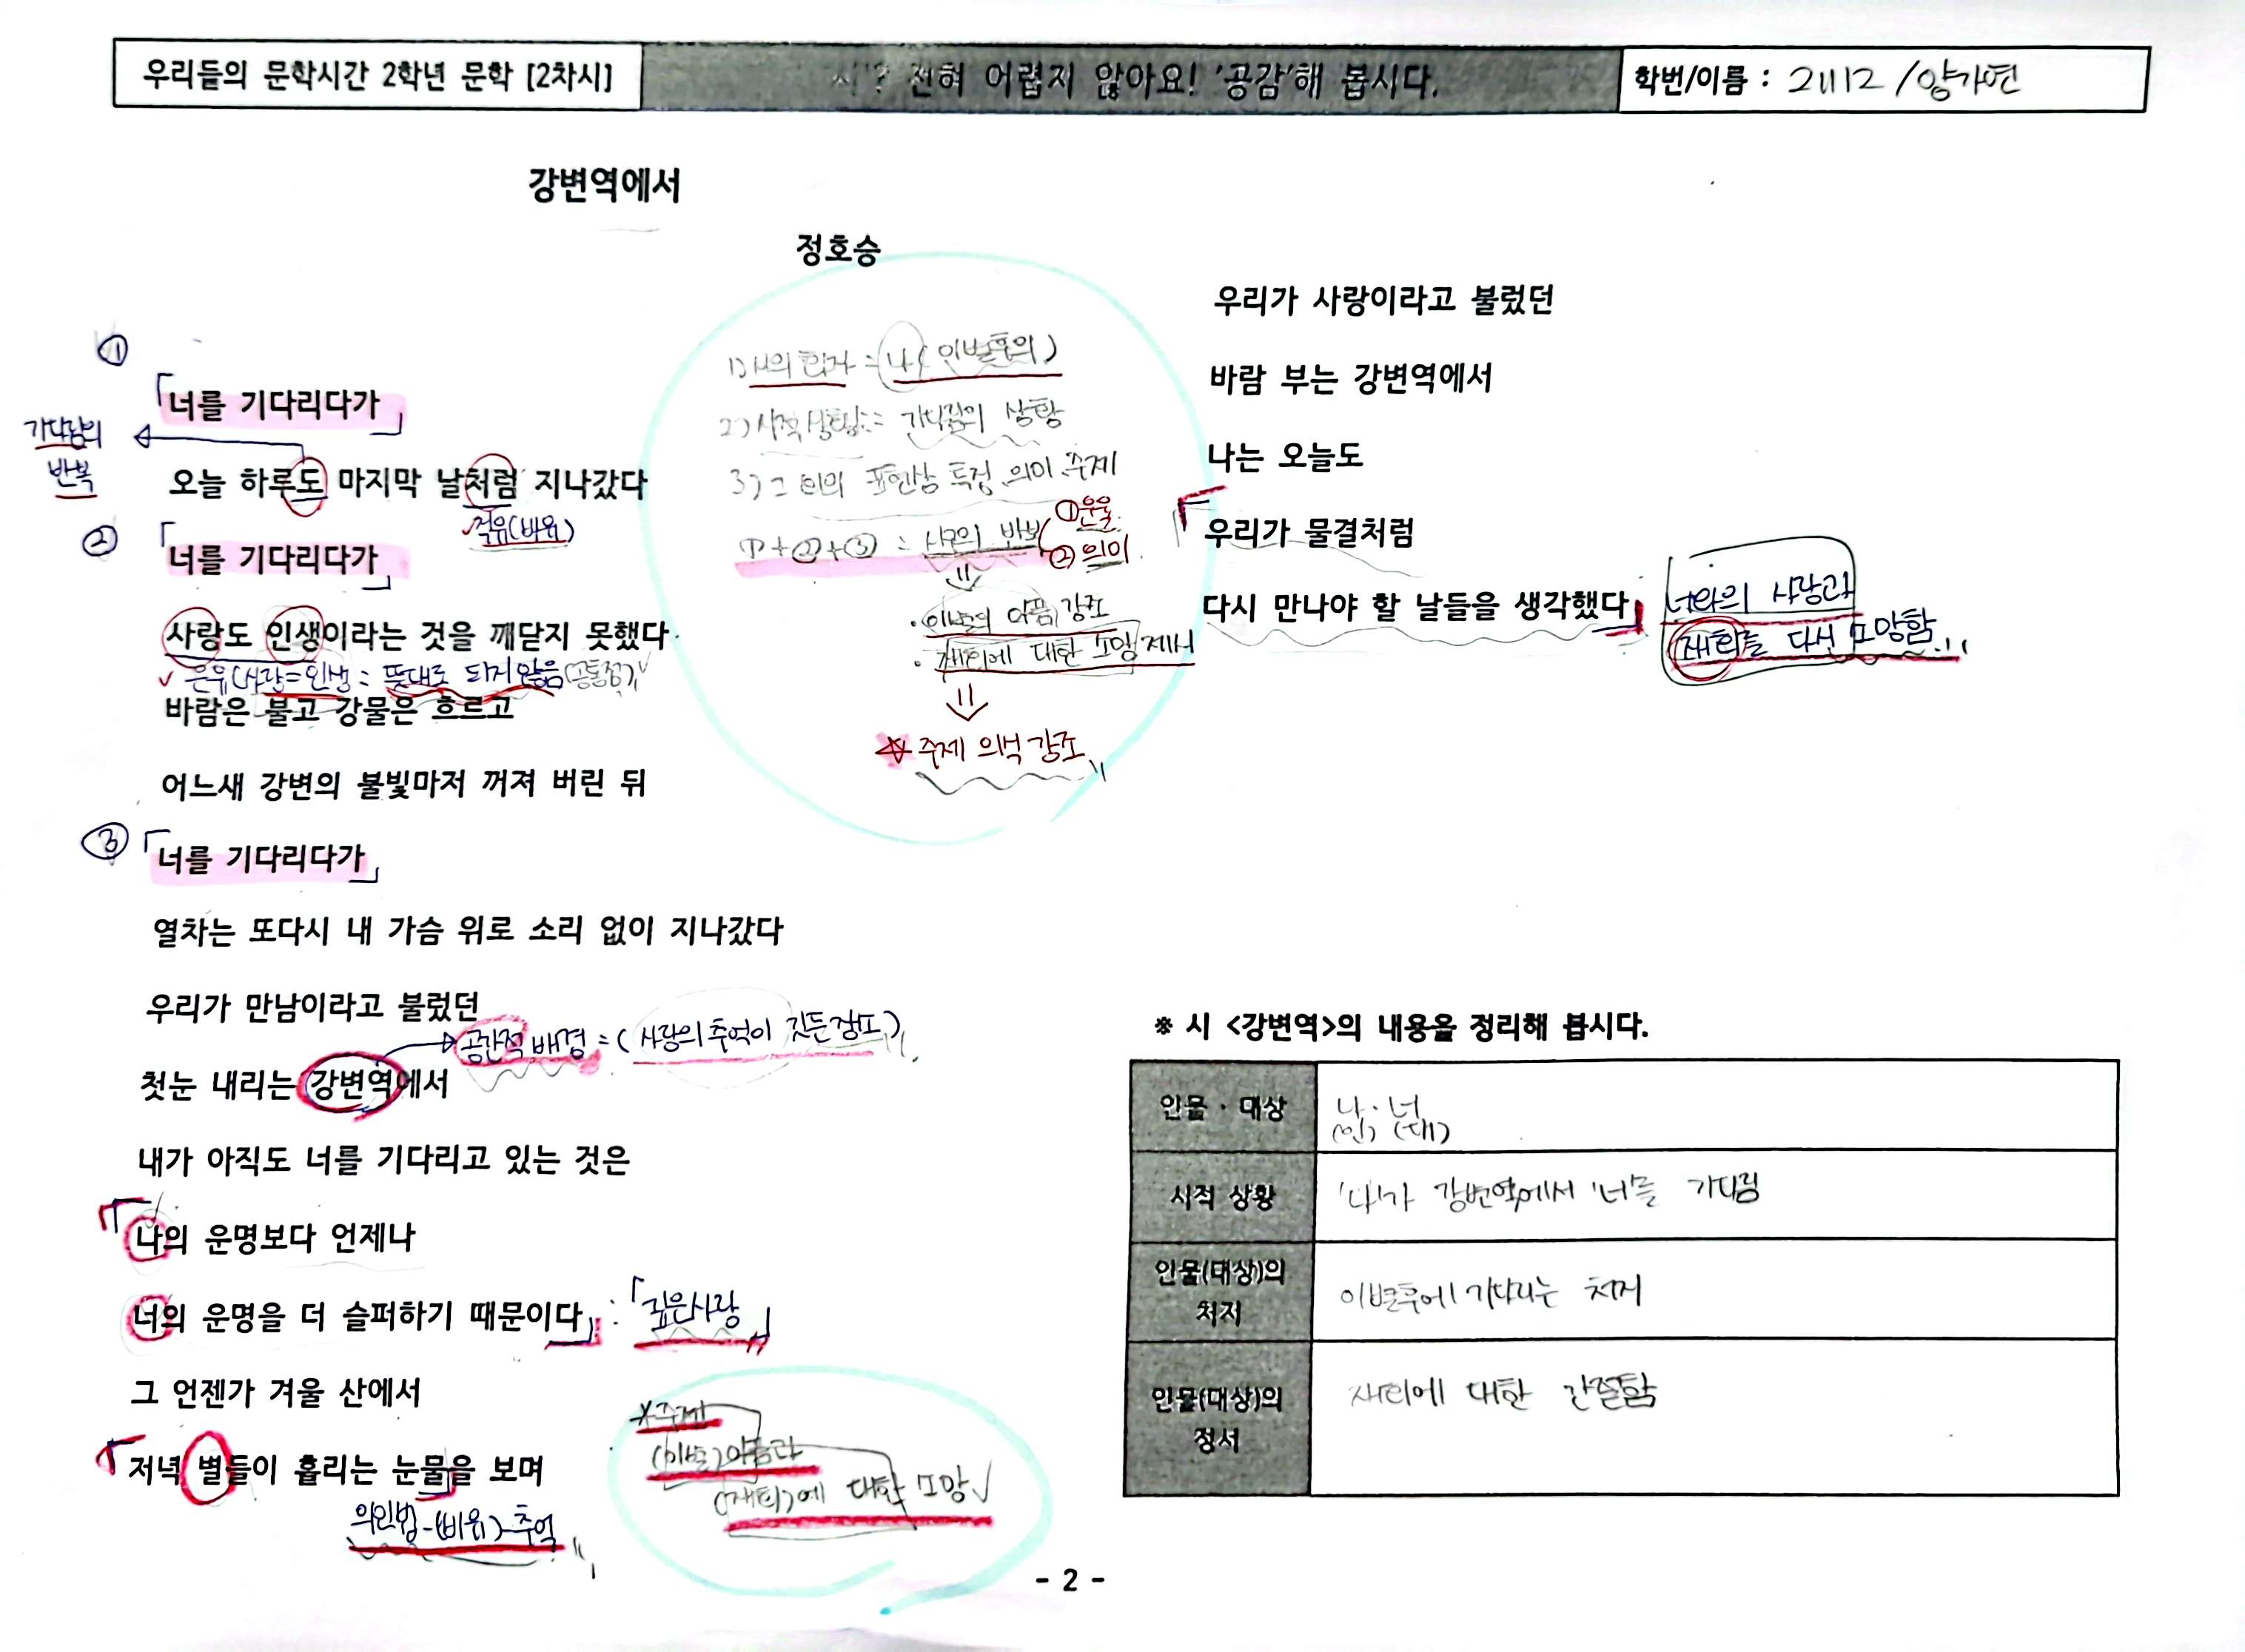 우리들의 문학시간 2학년 문학 [2차시]
시? 전혀 어렵지 않아요! '공감'해 봅시다.
학번/이름 : 21112 /양가연
강변역에서
정호승
①
너를 기다리다가
기다림의
반복
오늘 하루도 마지막 날처럼 지나갔다
직유(비유)
②
너를 기다리다가
사랑도 인생이라는 것을 깨닫지 못했다
은유(사랑=인생 = 뜻대로 되지 않음(공통점))
바람은 불고 강물은 흐르고
어느새 강변의 불빛마저 꺼져 버린 뒤
③
너를 기다리다가
열차는 또다시 내 가슴 위로 소리 없이 지나갔다
우리가 만남이라고 불렀던
공간적 배경 = (사랑의 추억이 깃든 장소)
첫눈 내리는 강변역에서
내가 아직도 너를 기다리고 있는 것은
나의 운명보다 언제나
너의 운명을 더 슬퍼하기 때문이다 : 「깊은사랑」
그 언젠가 겨울 산에서
저녁 별들이 흘리는 눈물을 보며
의인법-(비유)-추억
1) 시의 화자 = 나 (이별후의)
2) 시적 상황 = 기다림의 상황
3) 그 외의 표현상 특징, 의미, 주제
①+②+③ = 시구의 반복 ①운율
②의미
·이별의 아픔 강조
·재회에 대한 소망 제시
☆ 주제 의식 강조
*주제
(이별)아픔과
(재회)에 대한 소망
우리가 사랑이라고 불렀던
바람 부는 강변역에서
나는 오늘도
우리가 물결처럼
다시 만나야 할 날들을 생각했다
너와의 사랑과
재회를 다시 소망함
※ 시 <강변역>의 내용을 정리해 봅시다.
인물 · 대상
나 · 너
(인) (대)
시적 상황
'나'가 강변역에서 '너'를 기다림
인물(대상)의
처지
이별후에 기다리는 처지
인물(대상)의
정서
재회에 대한 간절함
- 2 -